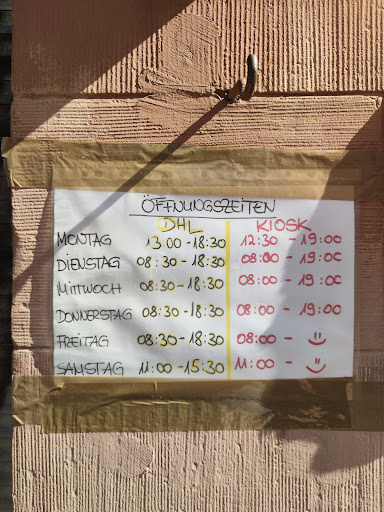 ÖFFNUNGSZEITEN
DHL KIOSK
MONTAG 13:00 - 18:30 12:30 - 19:00
DIENSTAG 08:30 - 18:30 08:00 - 19:00
MITTWOCH 08:30 - 18:30 08:00 - 19:00
DONNERSTAG 08:30 - 18:30 08:00 - 19:00
FREITAG 08:30 - 18:30 08:00 -
SAMSTAG 11:00 - 15:30 11:00 -